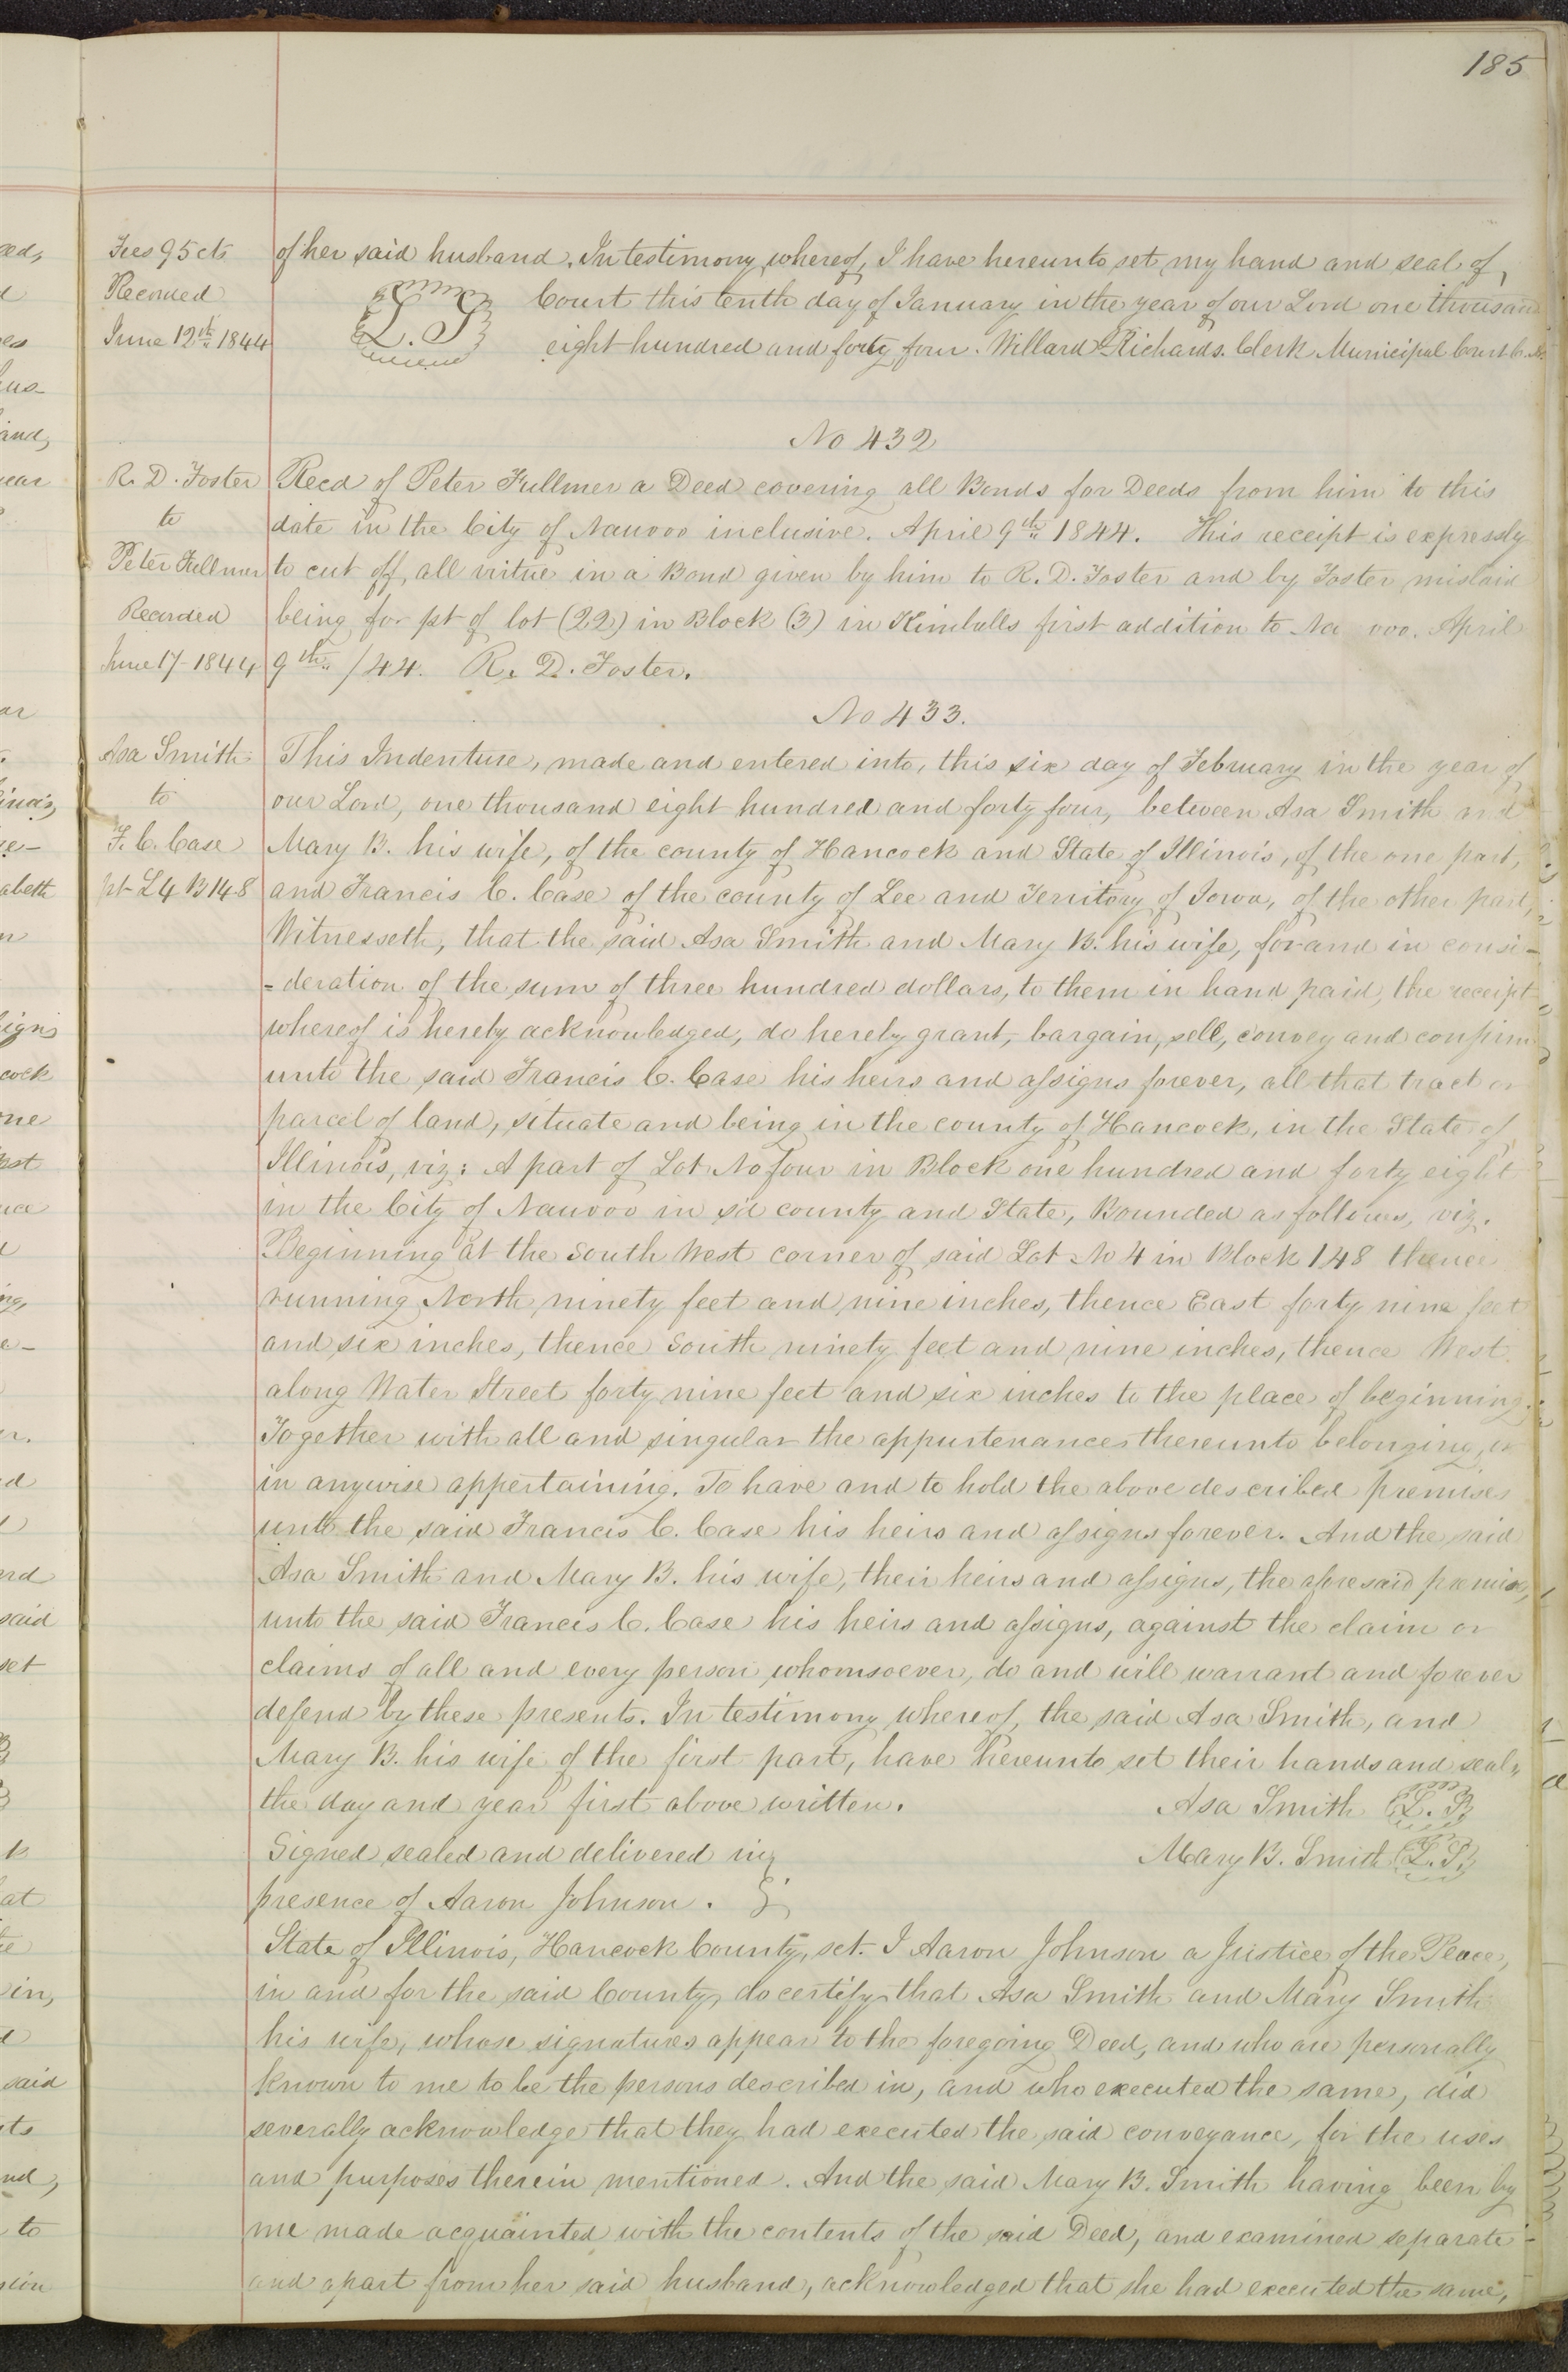 185
Fees 95 cts
Recorded
June 12th 1844
of her said husband. In testimony whereof, I have hereunto set my hand and seal of
L.S
Court this tenth day of January in the year of our Lord one thousand
eight hundred and forty four. Willard Richards. Clerk Municipal Court C. N.
No 432
R. D. Foster
to
Peter Fullmer
Recorded
June 17-1844
Recd of Peter Fullmer a Deed covering all Bonds for Deeds from him to this
date in the City of Nauvoo inclusive. April 9th 1844. This receipt is expressly
to cut off, all virtue in a Bond given by him to R. D. Foster and by Foster mislaid
being for pt of lot (22) in Block (3) in Kimballs first addition to Na voo. April
9th /44. R. D. Foster.
No 433.
Asa Smith
to
F. C. Case
pt L4 B148
This Indenture, made and entered into, this six day of February in the year of
our Lord, one thousand eight hundred and forty four, between Asa Smith and
Mary B. his wife, of the county of Hancock and State of Illinois, of the one part,
and Francis C. Case of the county of Lee and Territory of Iowa, of the other part,
Witnesseth, that the said Asa Smith and Mary B. his wife, for and in consi-
=deration of the sum of three hundred dollars, to them in hand paid, the receipt
whereof is hereby acknowledged, do hereby grant, bargain, sell, convey and confirm
unto the said Francis C. Case his heirs and assigns forever, all that tract or
parcel of land, situate and being in the county of Hancock, in the State of
Illinois, viz: A part of Lot No four in Block one hundred and forty eight
in the City of Nauvoo in s'd county and State, Bounded as follows, viz.
Beginning at the South West corner of said Lot No 4 in Block 148 thence
running North ninety feet and nine inches, thence East forty nine feet
and six inches, thence South ninety feet and nine inches, thence West
along Water Street forty nine feet and six inches to the place of beginning.
Together with all and singular the appurtenances thereunto belonging, or
in anywise appertaining. To have and to hold the above described premises
unto the said Francis C. Case his heirs and assigns forever. And the said
Asa Smith and Mary B. his wife, their heirs and assigns, the aforesaid premises,
unto the said Francis C. Case his heirs and assigns, against the claim or
claims of all and every person whomsoever, do and will warrant and forever
defend by these presents. In testimony whereof, the said Asa Smith, and
Mary B. his wife of the first part, have hereunto set their hands and seals
the day and year first above written. Asa Smith L.S
Signed sealed and delivered in Mary B. Smith L.S
presence of Aaron Johnson.
State of Illinois, Hancock County, sct. I Aaron Johnson a Justice of the Peace,
in and for the said County, do certify that Asa Smith and Mary Smith
his wife, whose signatures appear to the foregoing Deed, and who are personally
known to me to be the persons described in, and who executed the same, did
severally acknowledge that they had executed the said conveyance, for the uses
and purposes therein mentioned. And the said Mary B. Smith having been by
me made acquainted with the contents of the said Deed, and examined separate
and apart from her said husband, acknowledged that she had executed the same,